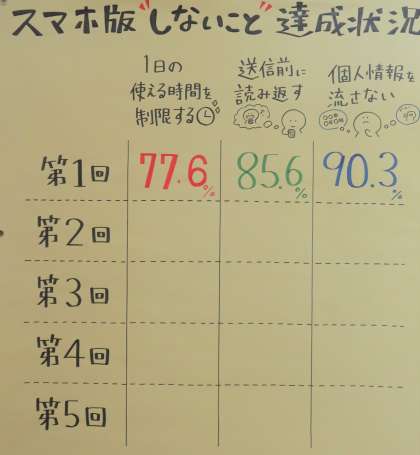 スマホ版"しないこと"達成状況
1日の
使える時間を
制限する
送信前に
読み返す
個人情報を
流さない
第1回 77.6% 85.6% 90.3%
第2回
第3回
第4回
第5回